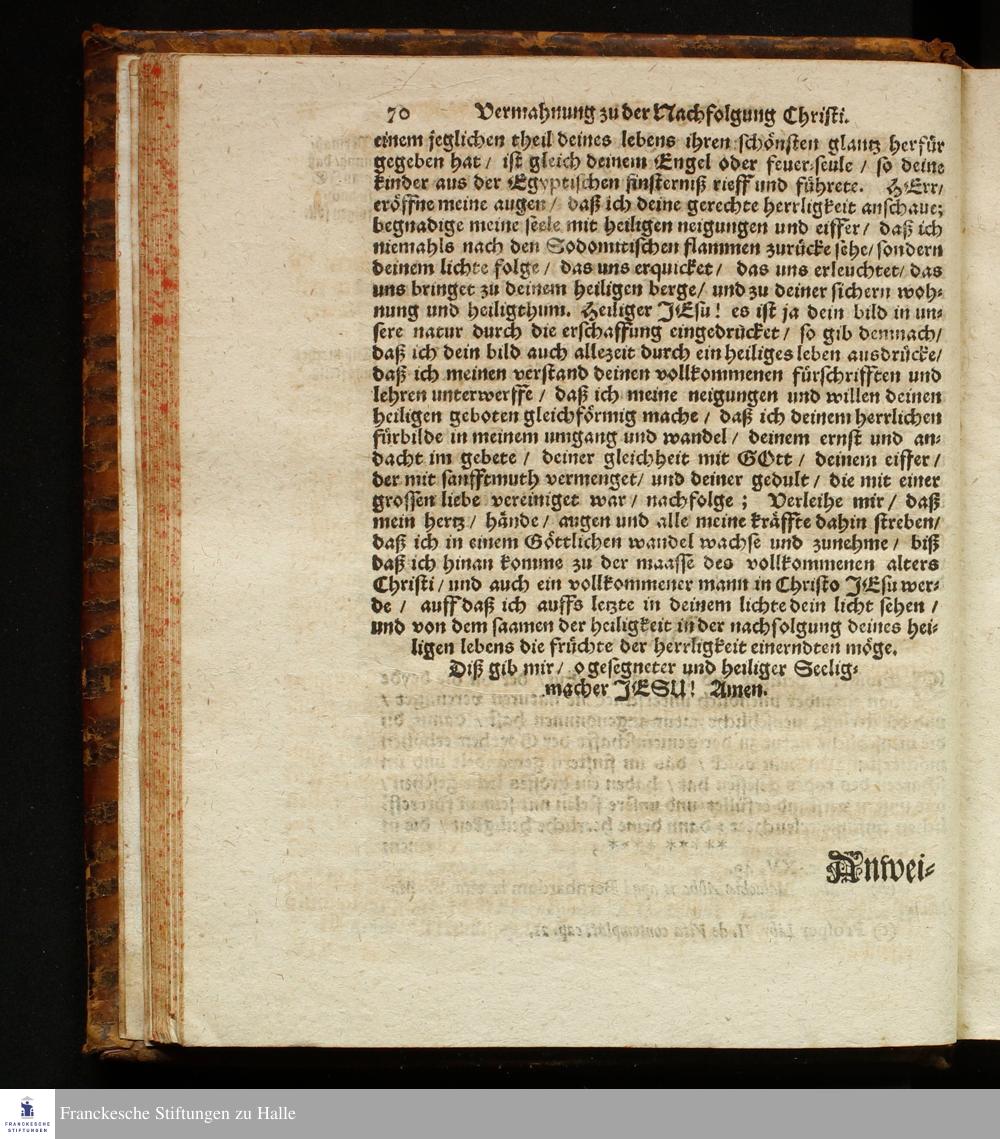 70 Vermahnung zu der Nachfolgung Christi.
einem jeglichen theil deines lebens ihren schönsten glantz herfür
gegeben hat / ist gleich deinem Engel oder feuer-seule / so deine
kinder aus der Egyptischen finsterniß rieff und führete. HErr/
eröffne meine augen / daß ich deine gerechte herrligkeit anschaue;
begnadige meine seele mit heiligen neigungen und eiffer / daß ich
niemahls nach den Sodomitischen flammen zurücke sehe/ sondern
deinem lichte folge / das uns erquicket / das uns erleuchtet/ das
uns bringet zu deinem heiligen berge / und zu deiner sichern woh-
nung und heiligthum. Heiliger JEsu! es ist ja dein bild in un-
sere natur durch die erschaffung eingedrücket / so gib demnach/
daß ich dein bild auch allezeit durch ein heiliges leben ausdrücke/
daß ich meinen verstand deinen vollkommenen fürschrifften und
lehren unterwerffe / daß ich meine neigungen und willen deinen
heiligen geboten gleichförmig mache / daß ich deinem herrlichen
fürbilde in meinem umgang und wandel / deinem ernst und an-
dacht im gebete / deiner gleichheit mit GOtt / deinem eiffer /
der mit sanfftmuth vermenget/ und deiner gedult / die mit einer
grossen liebe vereiniget war / nachfolge ; Verleihe mir / daß
mein hertz / hände / augen und alle meine kräffte dahin streben/
daß ich in einem Göttlichen wandel wachse und zunehme / biß
daß ich hinan komme zu der maasse des vollkommenen alters
Christi / und auch ein vollkommener mann in Christo JEsu wer-
de / auff daß ich auffs letzte in deinem lichte dein licht sehen /
und von dem saamen der heiligkeit in der nachfolgung deines hei-
ligen lebens die früchte der herrligkeit einerndten möge.
Diß gib mir / o gesegneter und heiliger Seelig-
macher JESU! Amen.
Anwei-
FRANCKESCHE
STIFTUNGEN
Franckesche Stiftungen zu Halle